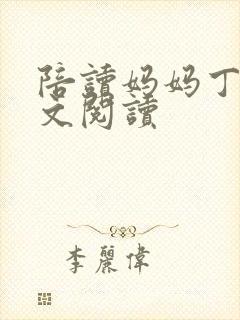 陪讀妈妈丁
文閱讀
李麗偉